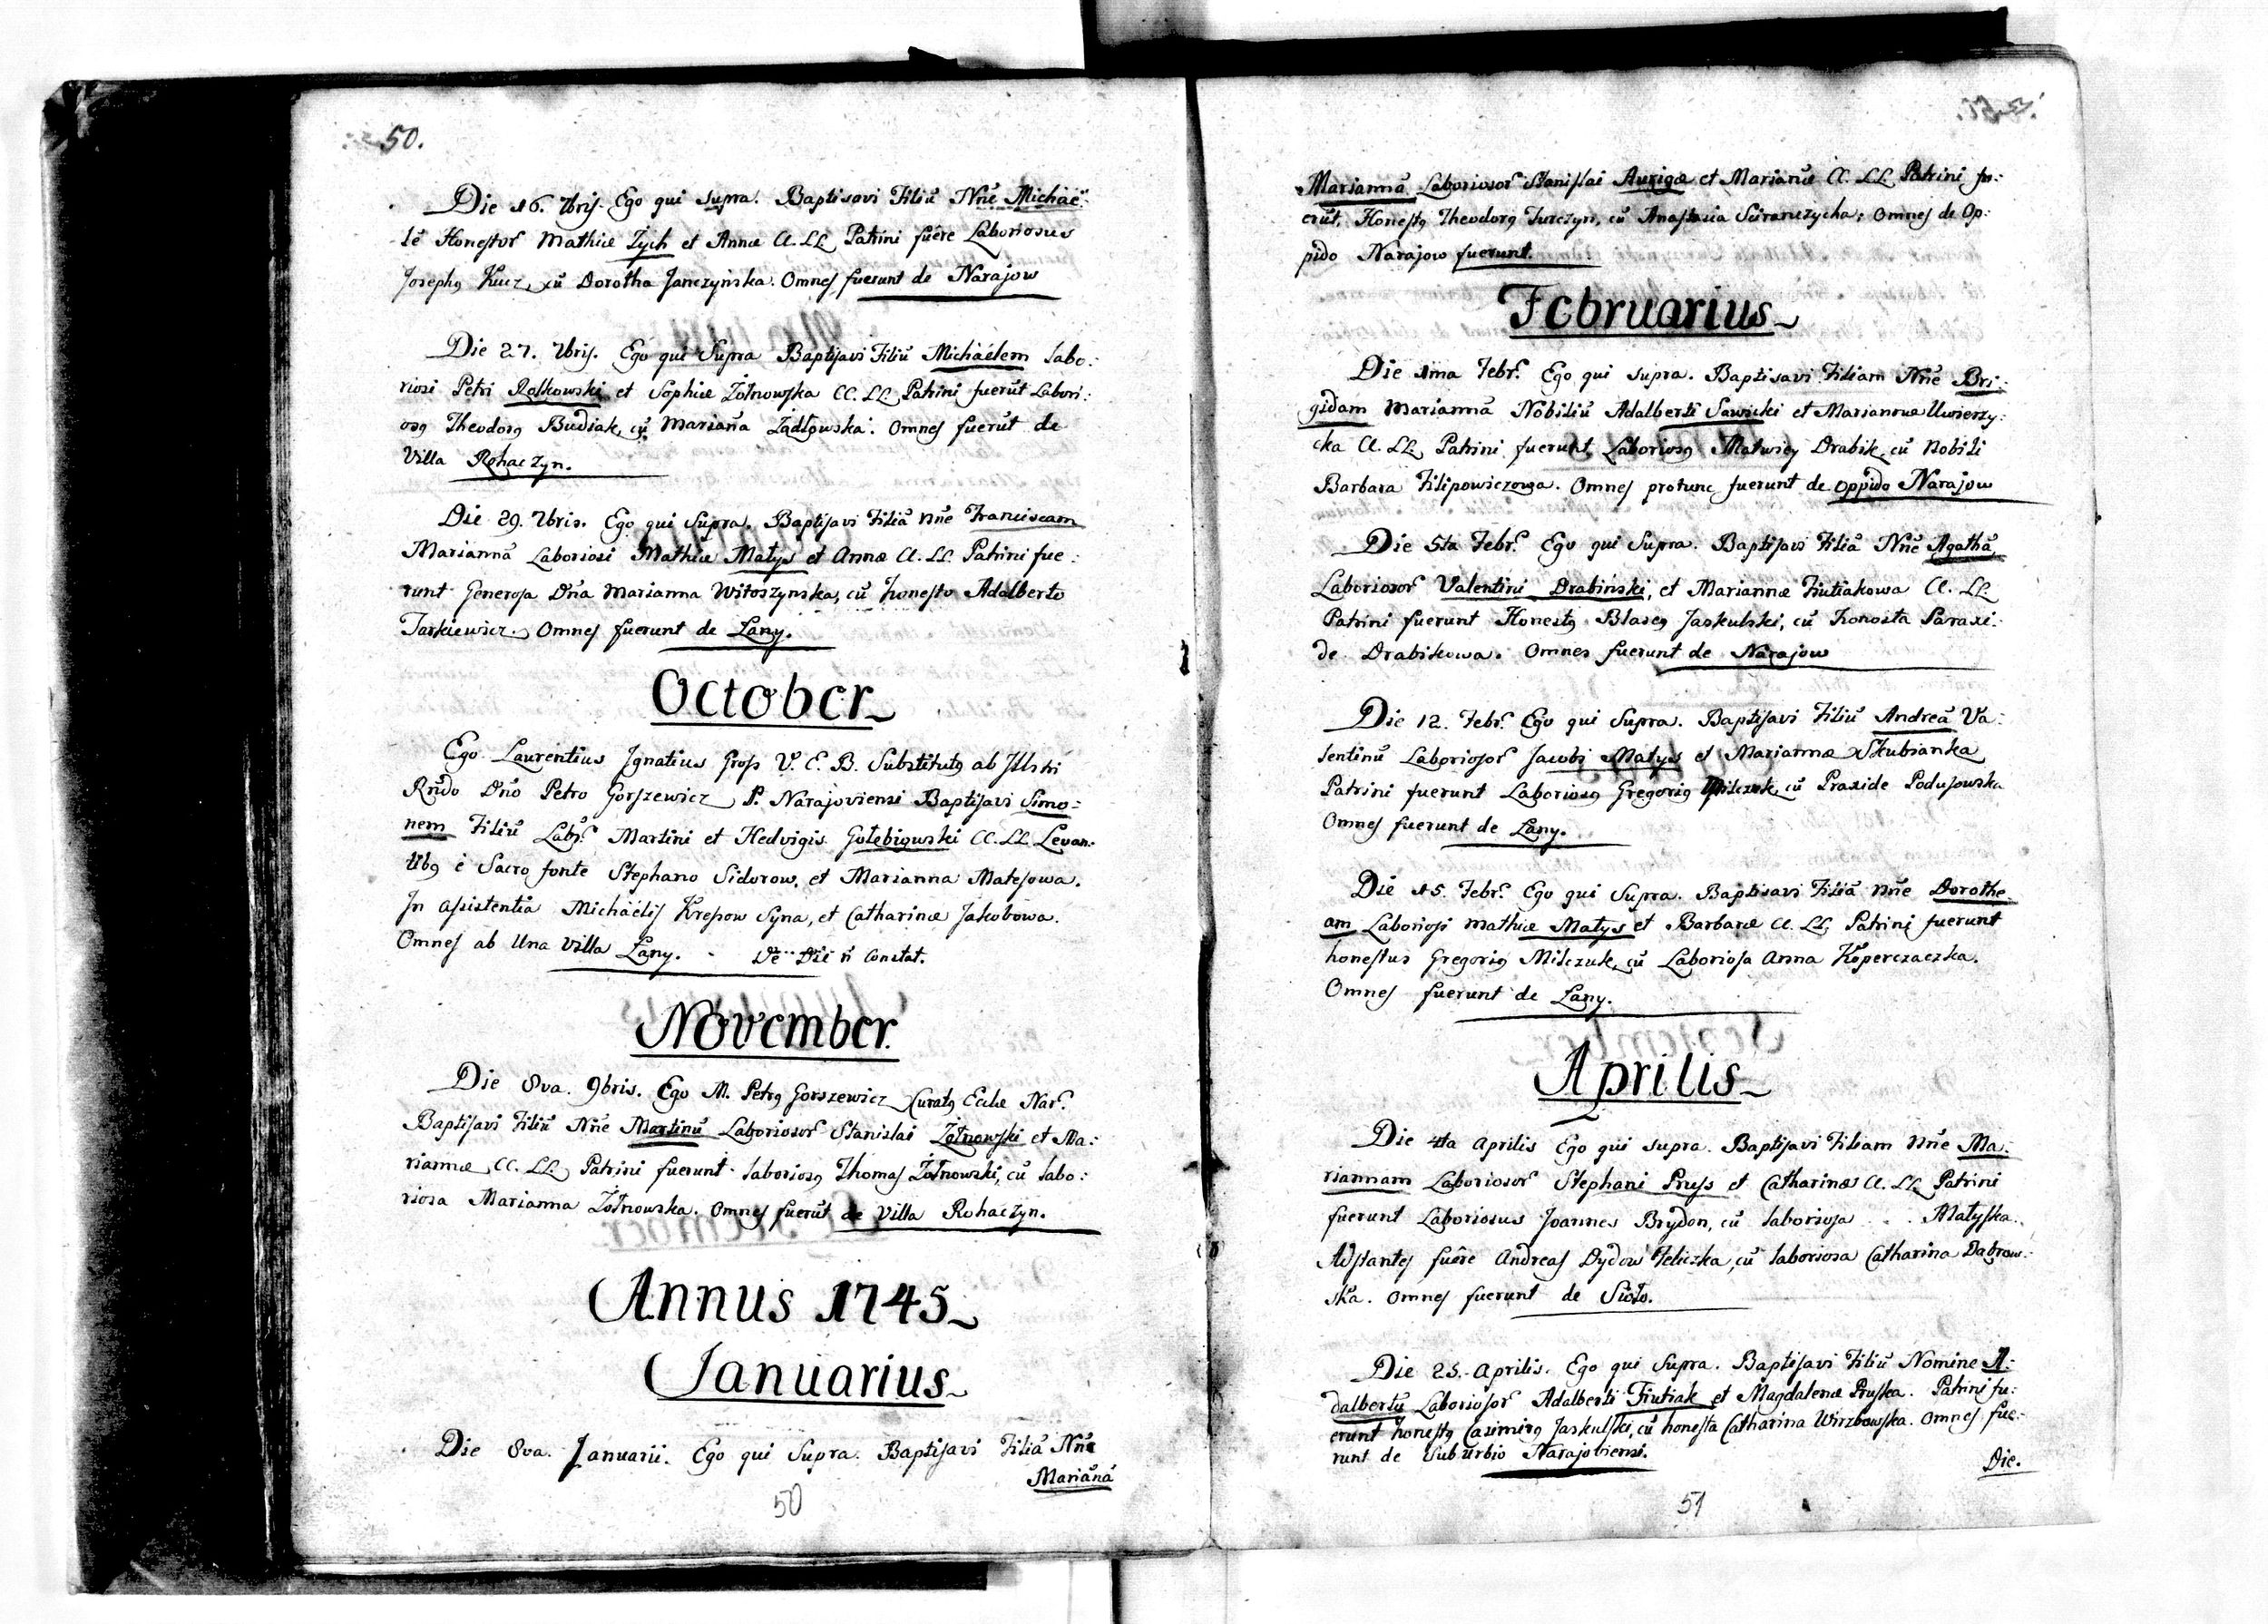 50.
Die 16. 7bris. Ego qui supra. Baptisavi Filiũ Nñe Michaë:
lẽ Honestor̃ Mathiæ Zych et Annæ CC. LL. Patrini fuêre Laboriosus
Joseph9 Kucz, cũ Dorotha Janczyńska. Omnes fuerunt de Narajow
Die 27. 7bris. Ego qui Supra Baptisavi Filiũ Michaëlem labo:
riosi Petri Rolkowski et Sophiæ Żołnowska CC. LL. Patrini fuerũt Labori:
os9 Theodor9 Budiak, cũ Mariãna Żądłowska. Omnes fuerũt de
Villa Rohaczyn.
Die 29. 7bris. Ego qui Supra. Baptisavi Filiã Nñe Franciscam
Mariannã Laboriosi Mathiæ Małys et Annæ CC. LL. Patrini fue:
runt Generosa Dña Marianna Witoszynska, cũ honesto Adalberto
Tarkiewicz. Omnes fuerunt de Łany.
October
Ego Laurentius Ignatius Gross V. C. B. Substitut9 ab Illstri
Rñdo Dño Petro Gorszewicz P. Narajoviensi Baptisavi Simo:
nem Filiũ Labr̃ Martini et Hedvigis Gołębiowski CC. LL. Levan:
tib9 è Sacro fonte Stephano Sidorow, et Marianna Matesowa.
In assistentia Michäelis Krepow Syna, et Catharinæ Jakobowa.
Omnes ab Una Villa Łany. - Dẽ Die ñ Constat.
November
Die 8va. 9bris. Ego M. Petr9 Gorszewicz Curat9 Ecclæ Nar̃.
Baptisavi Filiũ Nñe Martinũ Laboriosor̃ Stanislai Żołnowski et Ma:
riannæ CC. LL. Patrini fuerunt laborios9 Thomas Żołnowski, cũ labo:
riosa Marianna Żołnowska. Omnes fuerũt de Villa Rohaczyn.
Annus 1745
Januarius
Die 8va. Januarii. Ego qui Supra. Baptisavi Filiã Nñe
Mariãnã
50
Mariannã Laboriosor̃ Stanislai Aurigæ et Mariãnæ CC. LL. Patrini fu:
erũt, Honest9 Theodor9 Turczyn, cũ Anastasia Omnes de Op:
pido Narajow fuerunt.
Februarius
Die 1ma Febr̃. Ego qui supra. Baptisavi Filiam Nñe Bri:
gidam Mariannã Nobiliũ Adalberti Sawicki et Mariannæ Uwierzy:
cka CC. LL. Patrini fuerunt Laborios9 Matwiey Drabik, cũ Nobili
Barbara Filipowiczowa. Omnes protunc fuerunt de oppido Narajow
Die 5ta Febr̃. Ego qui Supra. Baptisavi Filiã Nñe Agathã
Laboriosor̃ Valentini Drabiński, et Mariannæ Fiutiakowa CC. LL.
Patrini fuerunt Honest9 Blasę9 Jaskulski, cũ honesta Paraxi:
de Drabikowa. Omnes fuerunt de Narajow
Die 12. Febr̃. Ego qui Supra. Baptisavi Filiũ Andreã Va:
lentinũ Laboriosor̃ Jacobi Małys et Mariannæ Skubianka
Patrini fuerunt Laborios9 Gregori9 Milczuk, cũ Praxide Podusowska
Omnes fuerunt de Łany.
Die 15. Febr̃. Ego qui Supra. Baptisavi Filiã Nñe Dorothe:
am Laboriosi Mathiæ Małys et Barbaræ CC. LL. Patrini fuerunt
honestus Gregori9 Milczuk, cũ Laboriosa Anna Koperczaczka.
Omnes fuerunt de Łany.
Aprilis
Die 4ta Aprilis Ego qui supra. Baptisavi Filiam Nñe Ma:
riannam Laboriosor̃ Stephani Pruss et Catharinæ CC. LL. Patrini
fuerunt Laboriosus Joannes Brydon, cũ laboriosa . . . Matyska.
Adstantes fuêre Andreas Dydow Teliczka, cũ laboriosa Catharina Dąbrow:
ska. Omnes fuerunt de Sioło.
Die 25. Aprilis. Ego qui Supra. Baptisavi Filiũ Nomine A:
dalbertũ Laboriosor̃ Adalberti Fiutiak et Magdalenæ Pruska. Patrini fu:
erunt honest9 Casimir9 Jaskulski, cũ honesta Catharina Wirzbowska. Omnes fue:
runt de Suburbio Narajoviensi.
Die.
51